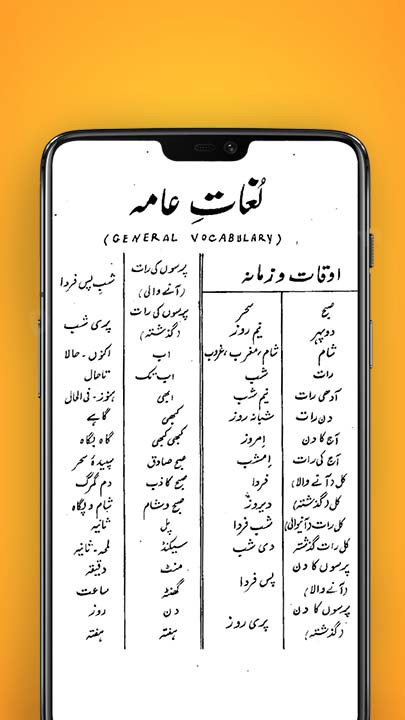 لُغاتِ عامہ
(GENERAL VOCABULARY)
اوقات و زمانہ
صبح سحر
دوپہر نیم روز
شام شام، مغرب، غروب
رات شب
آدھی رات نیم شب
دن رات شبانہ روز
آج کا دن اِمروز
آج کی رات اِمشب
کل (آنے والا) فردا
کل (گذشتہ) دیروز
کل رات (آنیوالی) شب فردا
کل رات گذشتہ دی شب
پرسوں کا دن
(آنے والا) پس فردا
پرسوں کا دن
(گذشتہ) پری روز
پرسوں کی رات
(آنے والی) شبِ پس فردا
پرسوں کی رات
(گذشتہ) پری شب
اب اکنوں - حالا
اب تک تاحال
ابھی ہنوز - فی الحال
کبھی گاہے
کبھی کبھی گاہ بگاہ
صبح صادق سپیدۂ سحر
صبح کاذب دم گرگ
صبح و شام شام و پگاہ
پل ثانیہ
سیکنڈ لمحہ - ثانیہ
منٹ دقیقہ
گھنٹہ ساعت
دن روز
ہفتہ ہفتہ